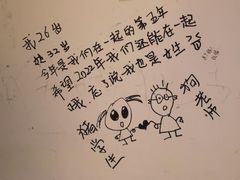 我26岁
她32岁
今年是我们在一起的第五年
希望2022年我们还能在一起
哦，忘了说我也是女生
猫学生
狗老师